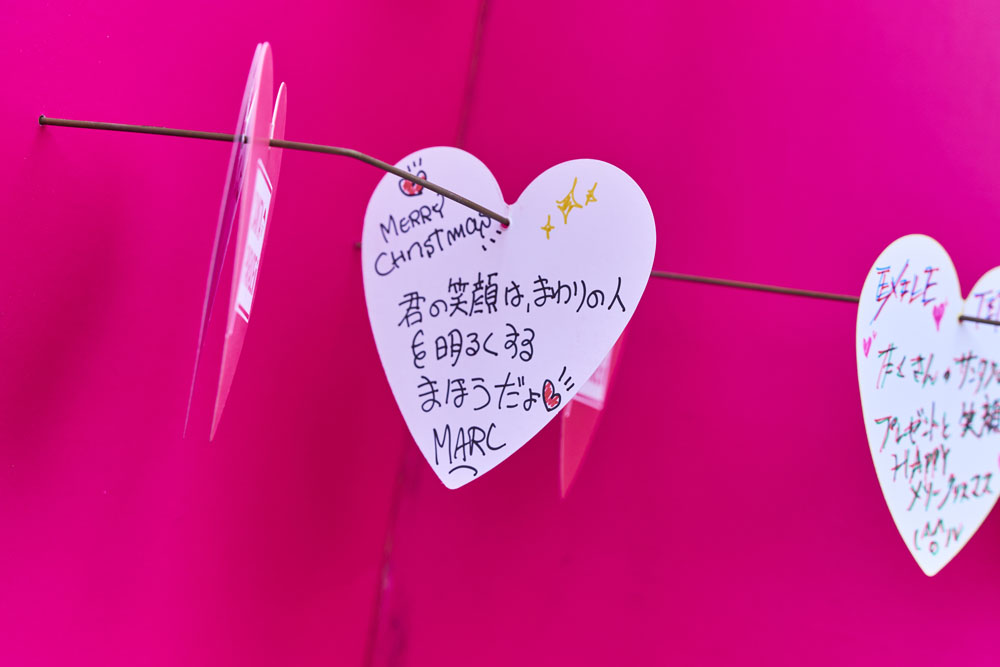 MERRY
CHRISTMAS
君の笑顔は、まわりの人
を明るくする
まほうだよ
MARC
EXILE
たくさんのサンタ
プレゼントと笑顔
HAPPY
メリークリスマス